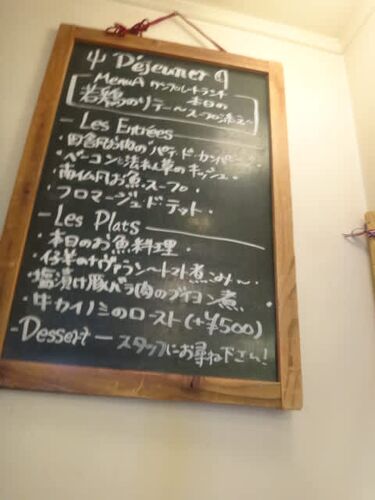 Déjeuner
MenuA ワンプレートランチ
若鶏のソテー 本日の
スープ添え〜
- Les Entrées
・田舎風お肉のパテ・ド・カンパーニュ
・ベーコンと法れん草のキッシュ・
・南仏風お魚・スープ・
・フロマージュ・ド・テット・
- Les Plats
・本日のお魚料理・
・仔羊のナヴァラン〜トマト煮込み〜
・塩漬け豚バラ肉のブイヨン煮
・牛カイノミのロースト(+¥500)
-Dessert- スタッフにお尋ね下さい!